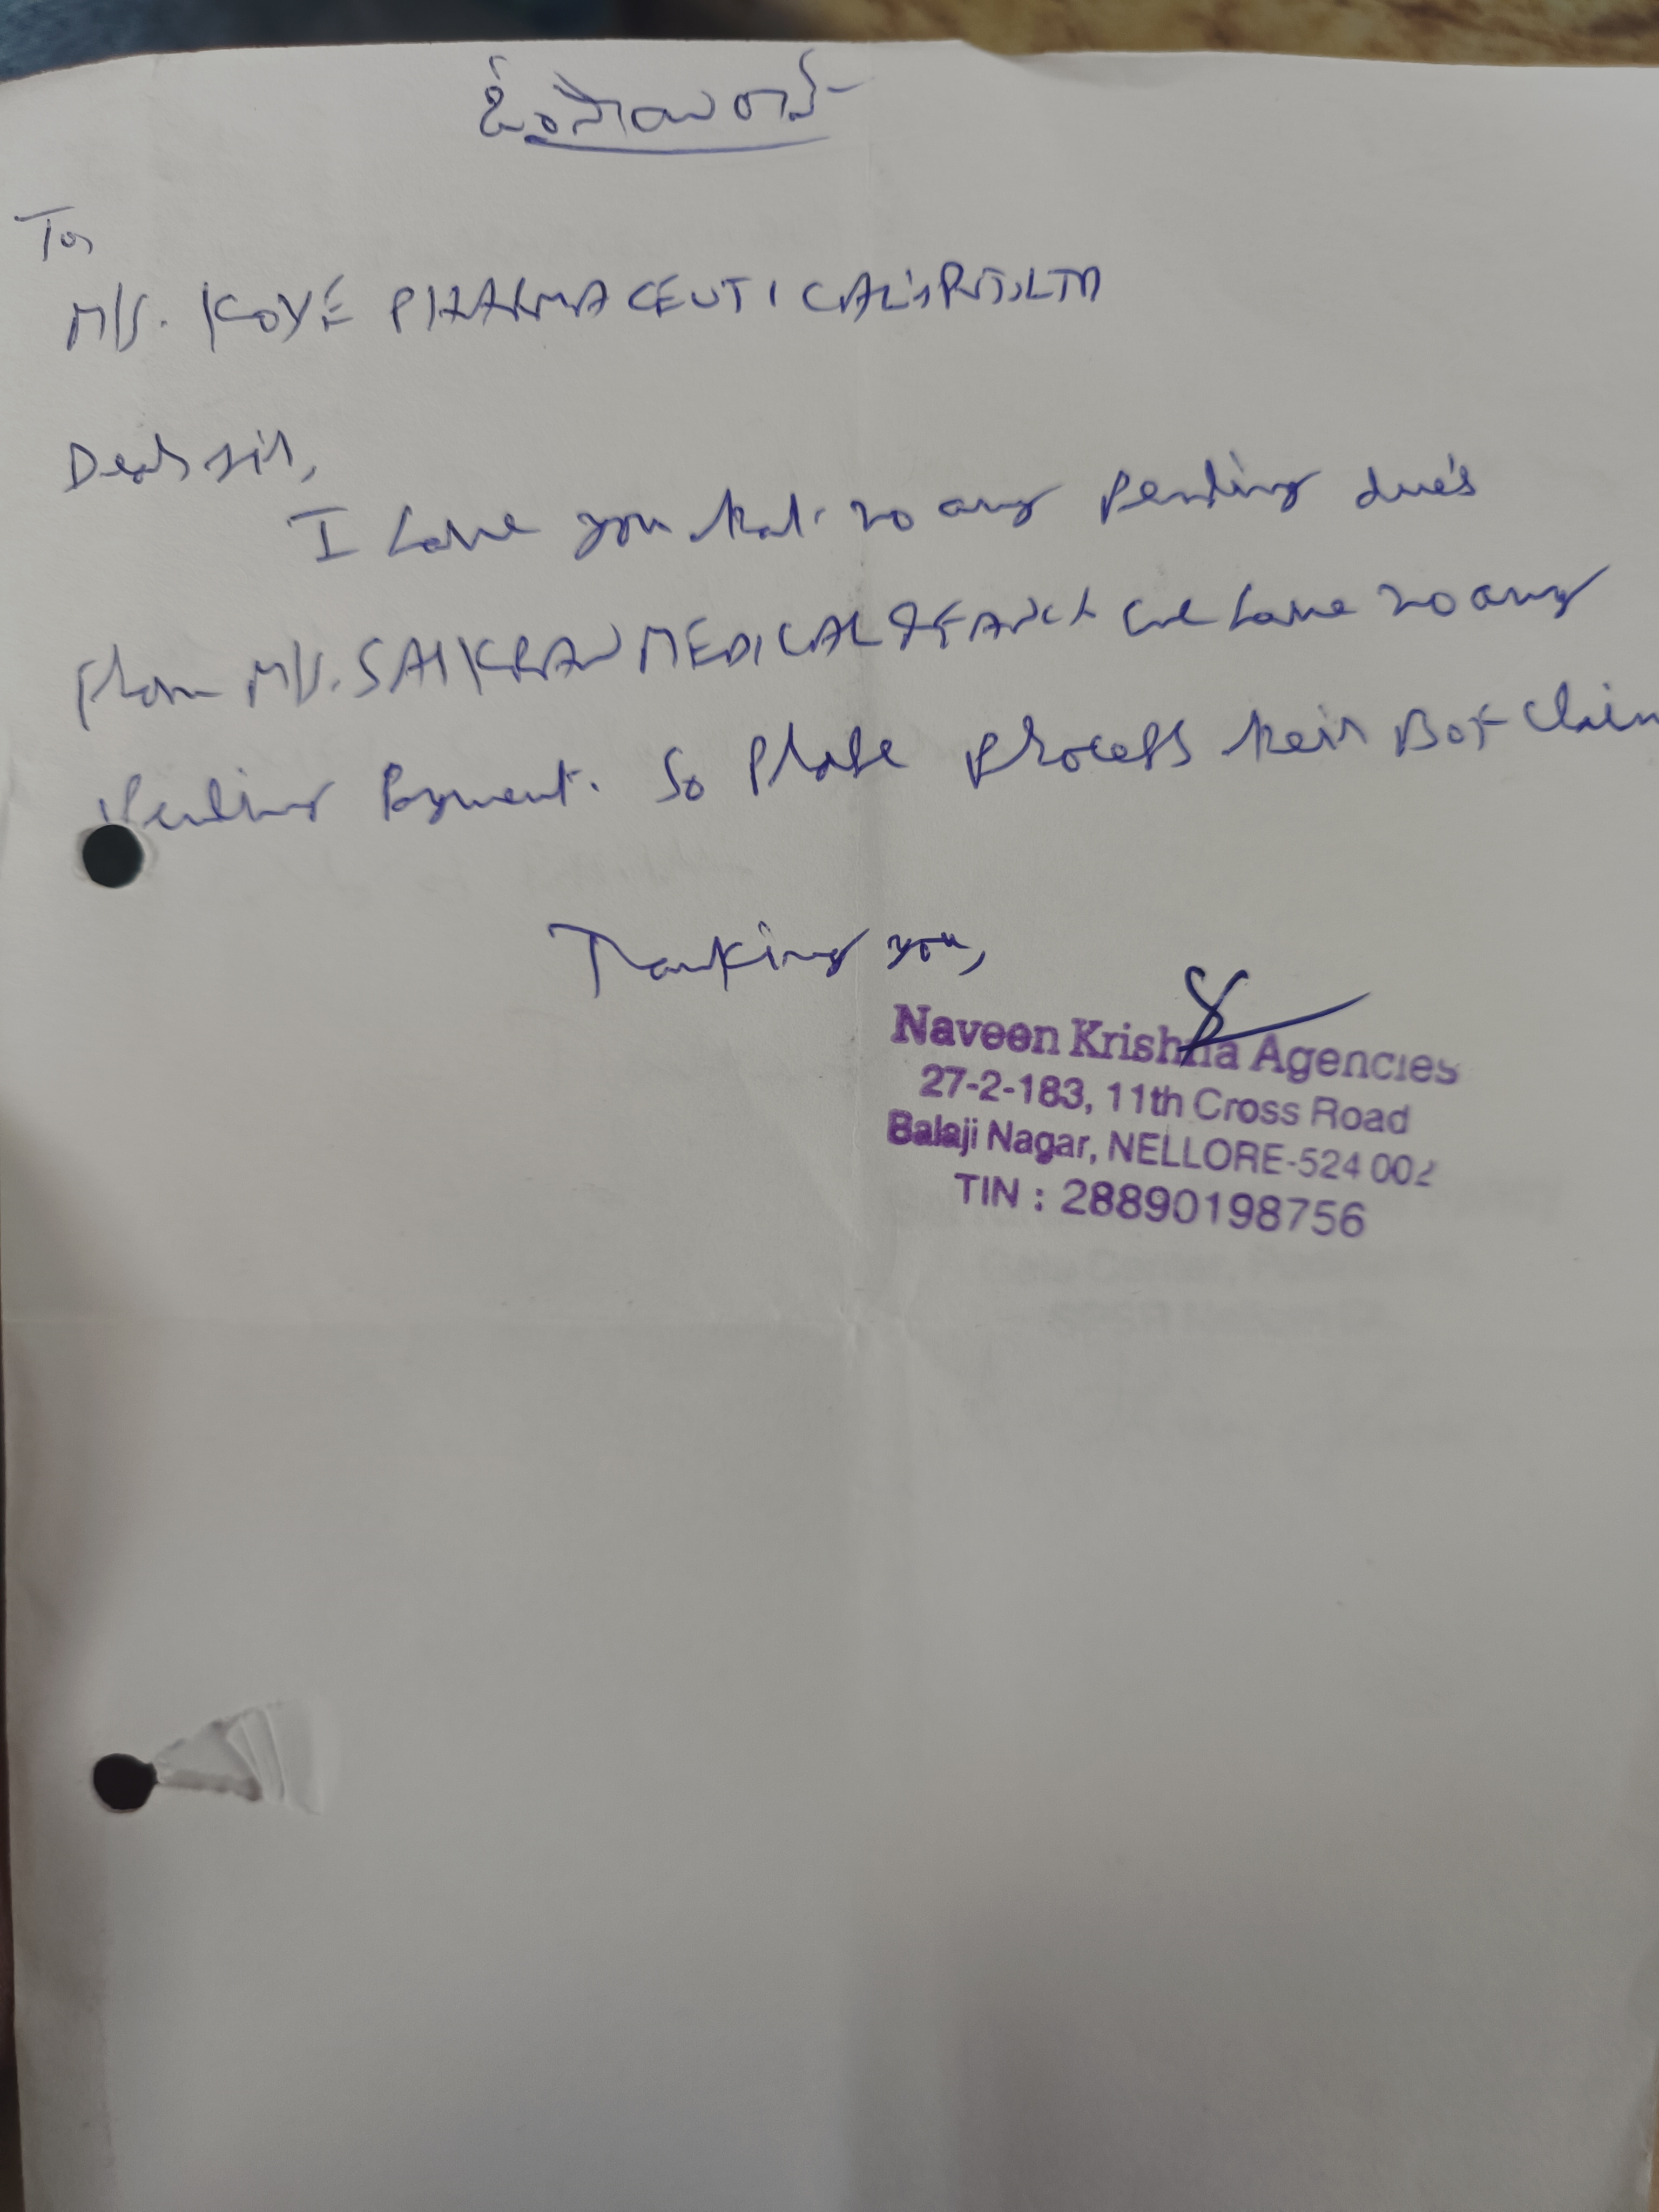 ఓం సాయిరామ్
To,
M/s. KOYE PHARMACEUTICAL'S PVT.LTD
Dear sir,
I have you that no any pending due's
from M/s. SAI KIRAN MEDICAL & we have no any
Pending Payment. So please process their Bot Claim
Thanking you,
Naveen Krishna Agencies
27-2-183, 11th Cross Road
Balaji Nagar, NELLORE-524 002
TIN : 28890198756